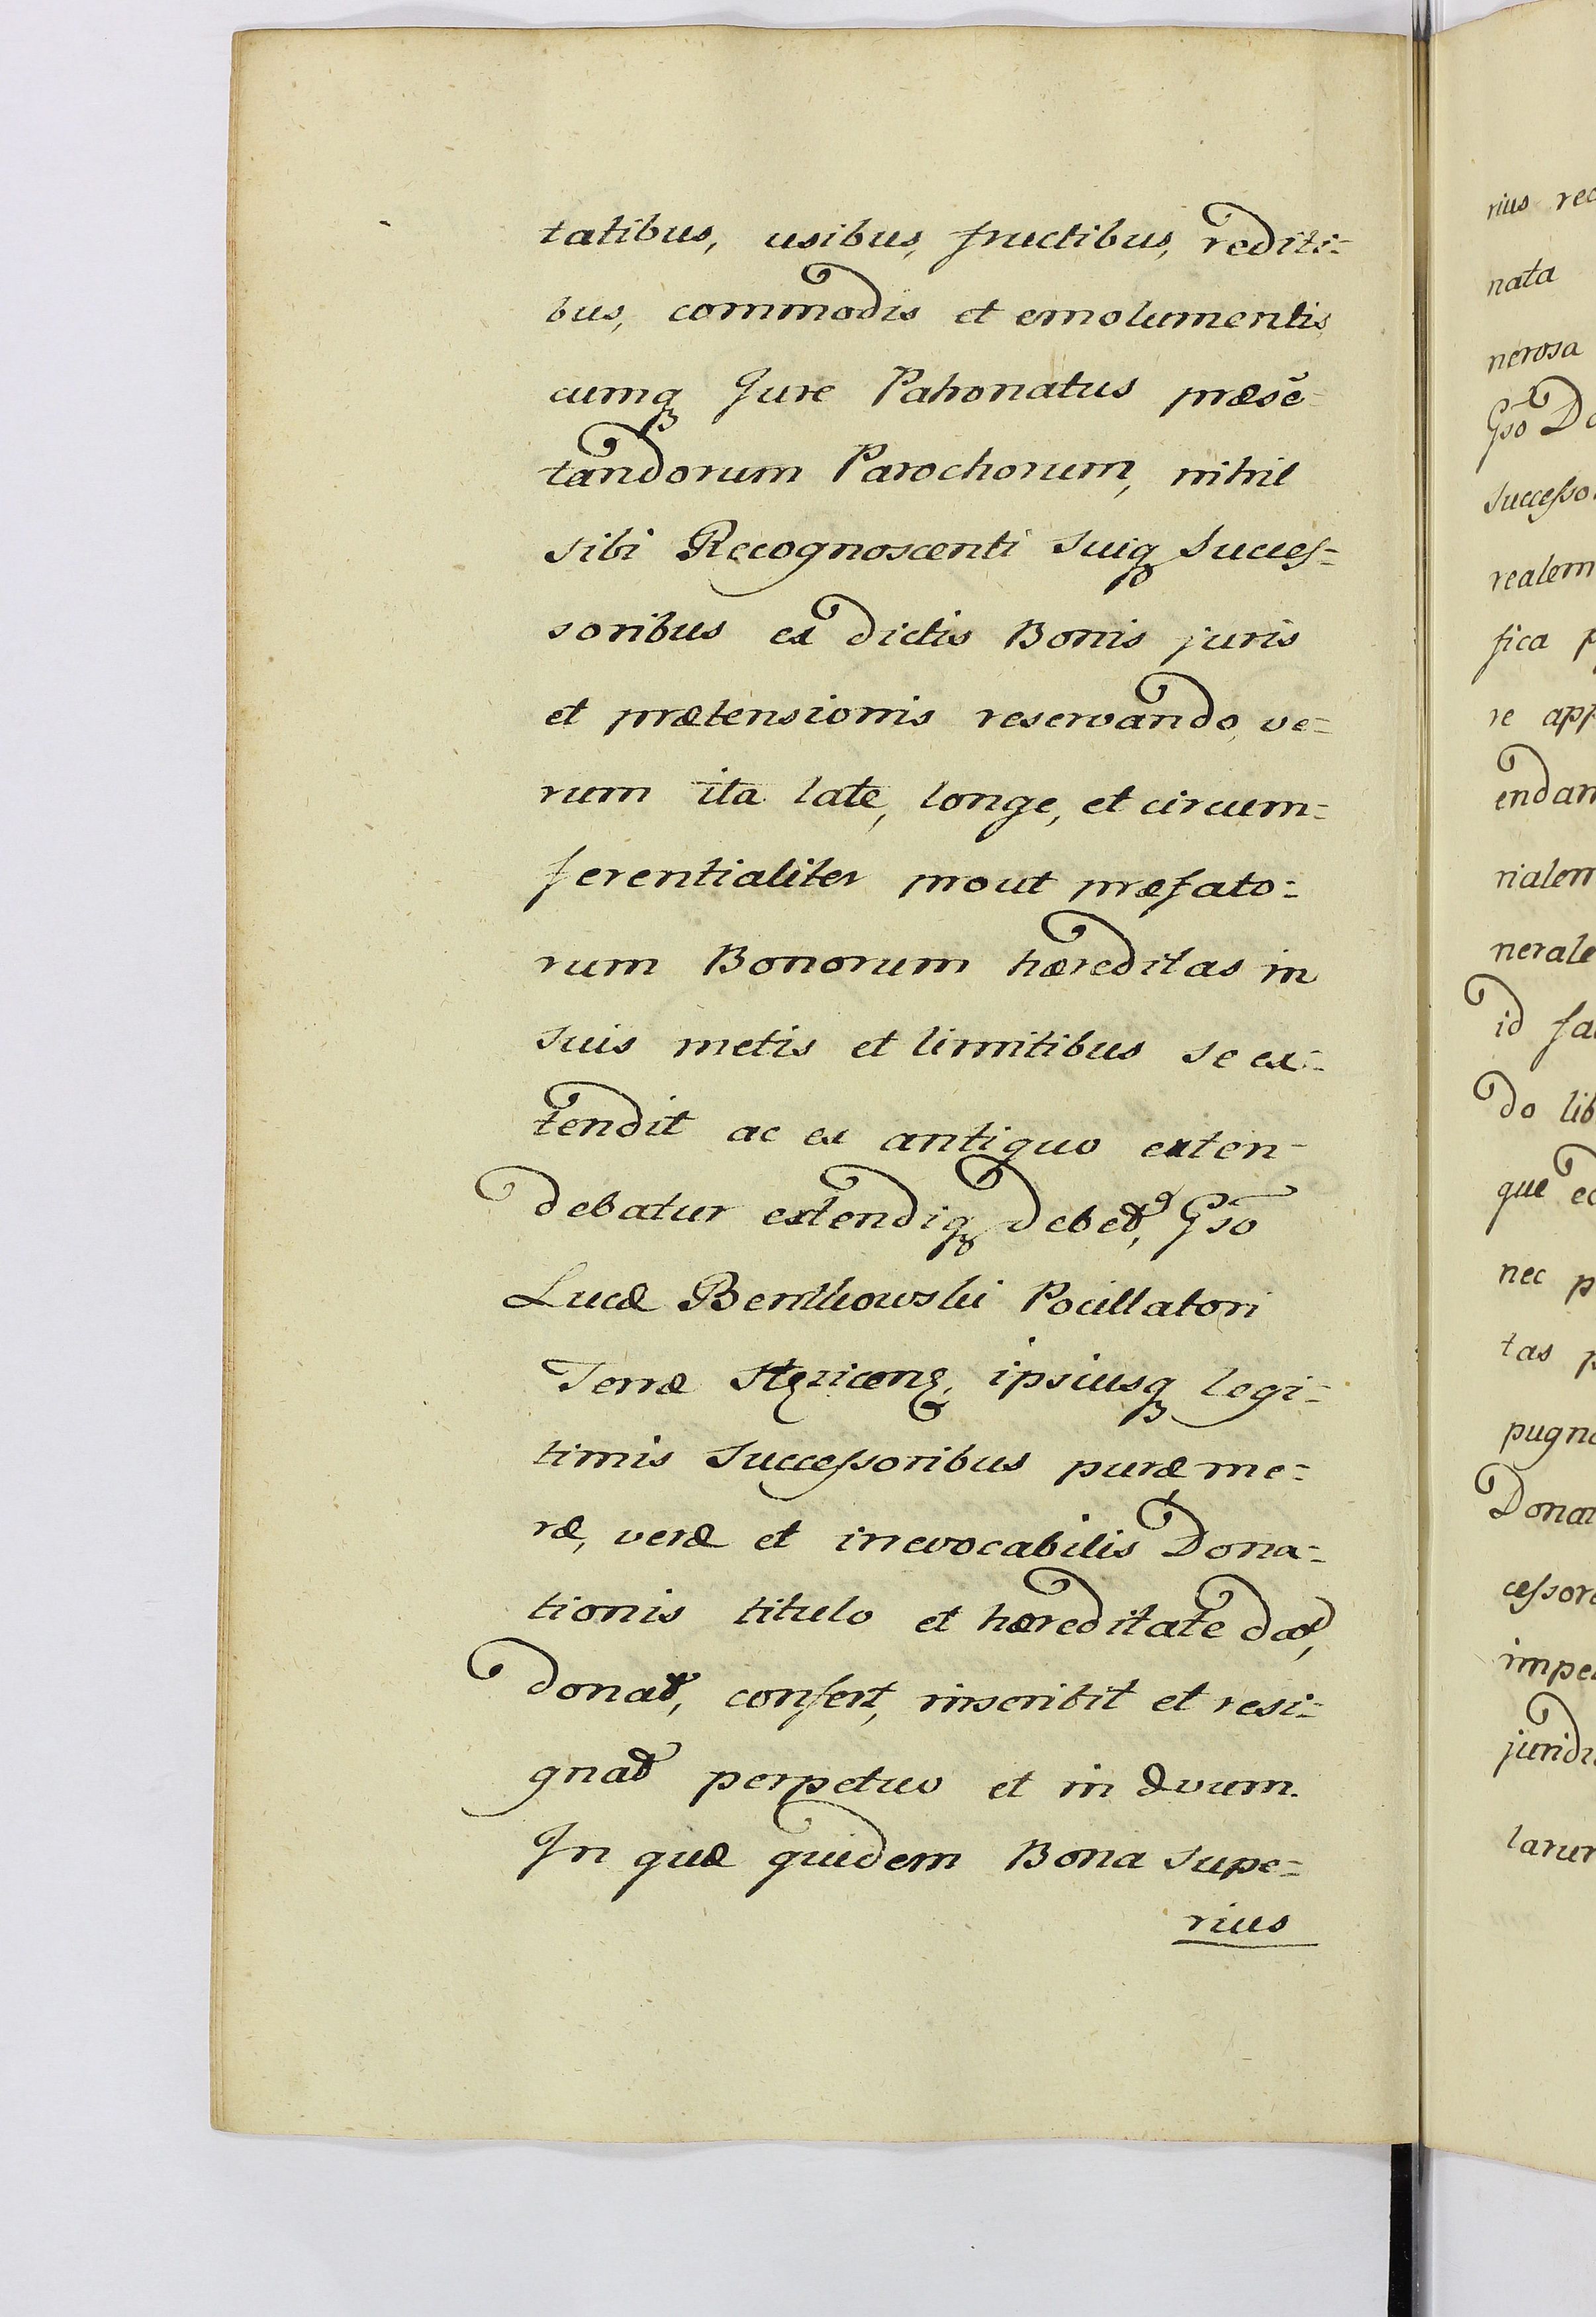 tatibus, usibus, fructibus, rediti=
bus, commodis et emolumentis
cumq Jure Patronatus præsē=
tandorum Parochorum, nihil
sibi Recognoscenti suiq Succes=
soribus ex dictis Bonis juris
et prætensionis reservando, ve=
rum ita late, longe, et circum=
ferentialiter prout præfato=
rum Bonorum hæreditas in
suis metis et limitibus se ex=
tendit ac ex antiquo exten=
debatur extendiq debet, Gso
Lucæ Bembowski Pocillatori
Terræ ipsiusq legi=
timis Successoribus puræ me=
ræ, veræ et irrevocabilis Dona=
tionis titulo et hæreditate dat,
donat, confert, inscribit et resi=
gnat perpetuo et in ævum.
In quæ quidem Bona supe=
rius
rius
nata
nerosa
Gso
realem
fica
re
nerale
id
do
que
nec
tas